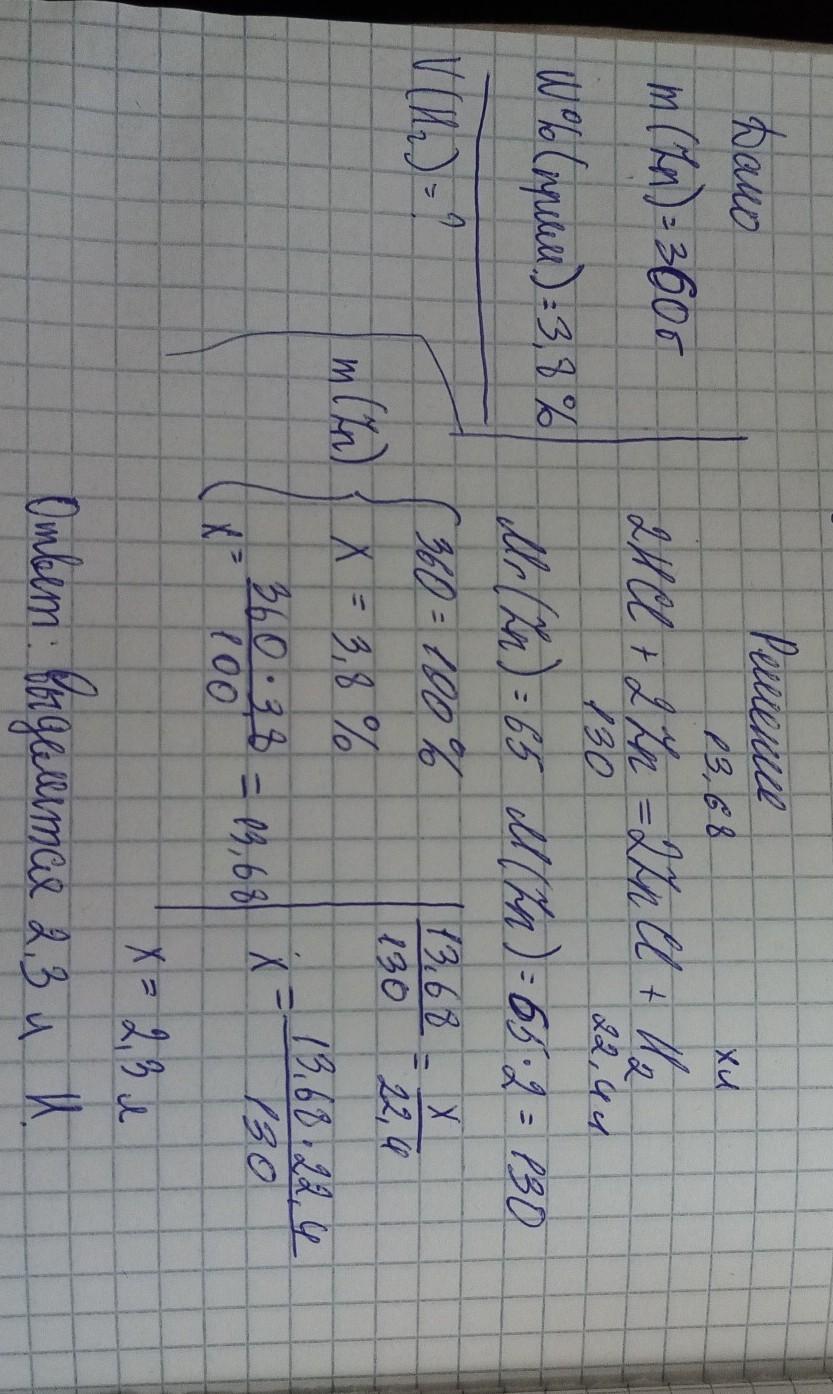 Дано
m(Zn)=360г
W%(прим.)=3,8%
V(H₂)=?
Решение
13,68 xл
2HCl + 2Zn = 2ZnCl + H₂
130 22,4л
Mr(Zn)=65 M(Zn)=65·2=130
m(Zn)
360 = 100%
x = 3,8%
x = 360·3,8/100 = 13,68
13,68/130 = x/22,4
x = 13,68·22,4/130
x = 2,3л
Ответ: выделится 2,3 л H.